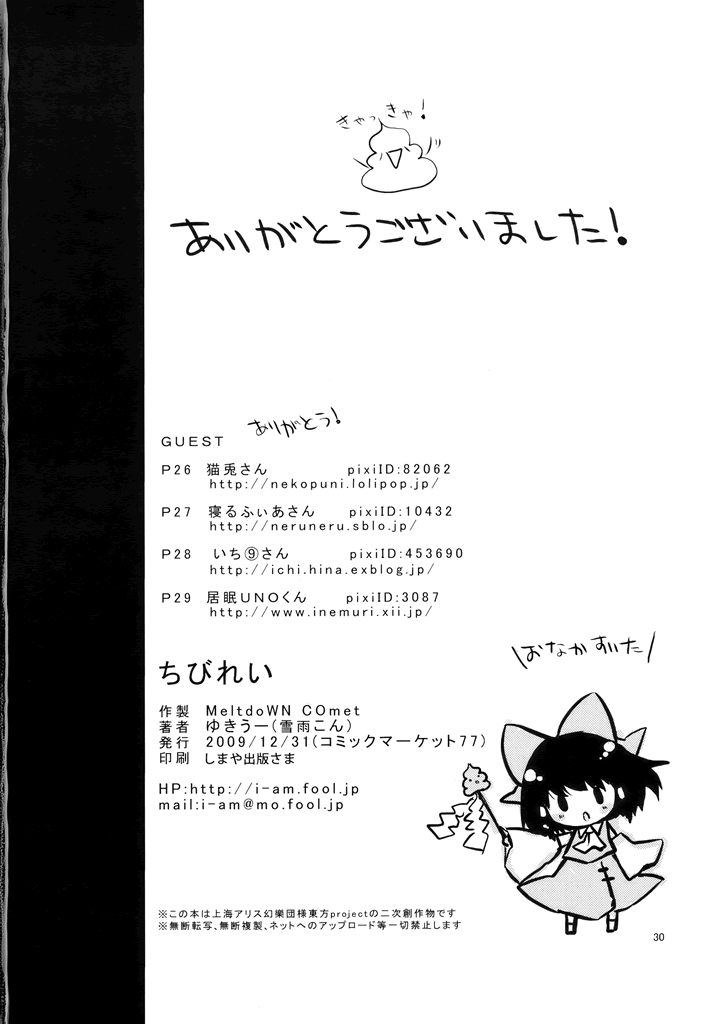 きゃっきゃ!
ありがとうございました!
ありがとう!
GUEST
P26 猫兎さん pixiID:82062
http://nekopuni.lolipop.jp/
P27 寝るふぃあさん pixiID:10432
http://neruneru.sblo.jp/
P28 いち⑨さん pixiID:453690
http://ichi.hina.exblog.jp/
P29 居眠UNOくん pixiID:3087
http://www.inemuri.xii.jp/
おなかすいた
ちびれい
作製 MeltdoWN COmet
著者 ゆきうー(雪雨こん)
発行 2009/12/31(コミックマーケット77)
印刷 しまや出版さま
HP:http://i-am.fool.jp
mail:i-am@mo.fool.jp
※この本は上海アリス幻樂団様東方projectの二次創作物です
※無断転写、無断複製、ネットへのアップロード等一切禁止します
30